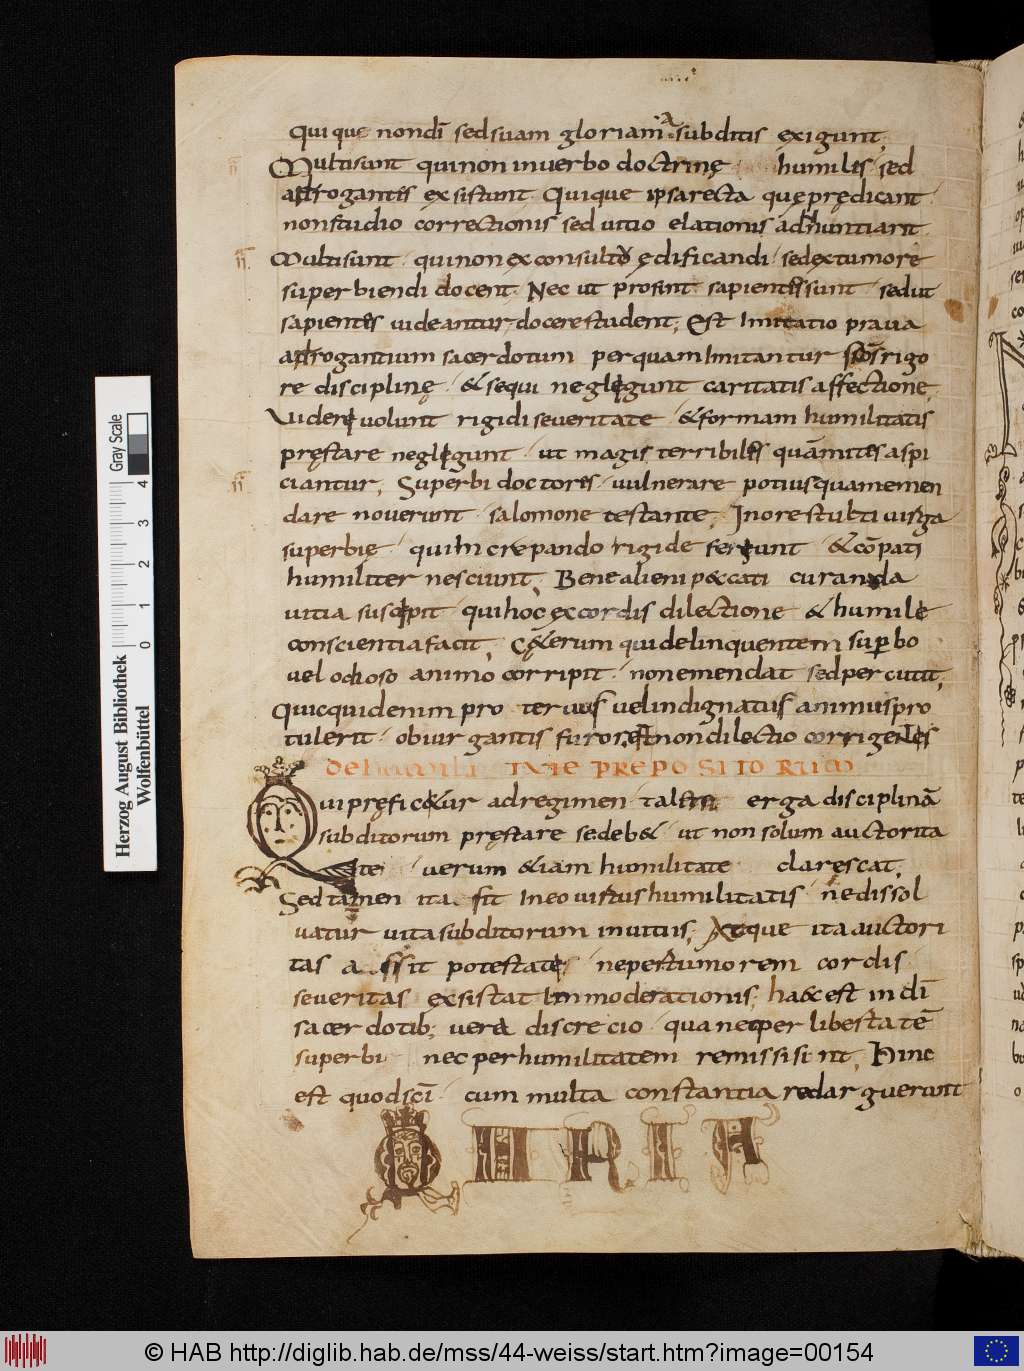 Qui que nondī sed suam gloriam a subditis exigunt;
Multi sunt qui non in uerbo doctrinę humiles sed
arrogantes exsistunt. Quique ipsa recta quę prędicant
non studio correctionis sed uitio elationis adnuntiant.
Multi sunt qui non ex consultu ędificandi sed ex tumore
superbiendi docent. Nec ut prosint sapientes sunt sed ut
sapientes uideantur docere student; Est Imitatio praua
arrogantium sacerdotum per quam Imitantur scōs rigo
re disciplinę & sequi neglegunt caritatis affectione,
Videri uolunt rigidi seueritate & formam humilitatis
pręstare neglegunt ut magis terribiles quā mites aspi
ciantur, Superbi doctores uulnerare potius quam emen
dare nouerunt salomone testante, In ore stulti uirga
superbię qui increpando rigide feriunt & cōpati
humiliter nesciunt; Bene alieni peccati curanda
uitia suscipit qui hoc ex cordis dilectione & humile
conscientia facit, Cęterum qui delinquentem superbo
uel odioso animo corripit non emendat sed percutit,
Quicquid enim pro teruus uel indignatus animus pro
tulerit obiurgantis furor est non dilectio corrigentis
de humilitate PREPOSITORUM
Qui pręfic&ur ad regimen talem erga disciplinā
subditorum pręstare se deb& ut non solum auctorita
te uerum &iam humilitate clarescat,
Sed tamen ita sit In eo uirtus humilitatis ne dissol
uatur uita subditorum in uitiis; Atque ita auctori
tas assit potestatis ne per tumorem cordis
seueritas exsistat Immoderationis; hęc est in dī
sacerdotib; uera discrecio qua nec per libertatē
superbi nec per humilitatem remissi sint, Hinc
est quod scī cum multa constantia redarguerunt
Gray Scale
4 3 2 1 0
Herzog August Bibliothek
Wolfenbüttel
© HAB http://diglib.hab.de/mss/44-weiss/start.htm?image=00154